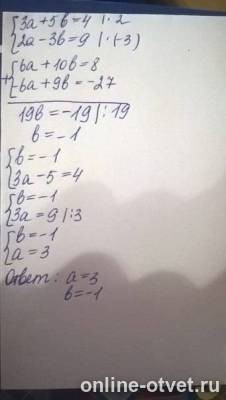 {3a+5b=4 |·2
{2a-3b=9 |·(-3)
+{6a+10b=8
{-6a+9b=-27
19b=-19|:19
b=-1
{b=-1
{3a-5=4
{b=-1
{3a=9|:3
{b=-1
{a=3
Ответ: a=3
b=-1
online-otvet.ru